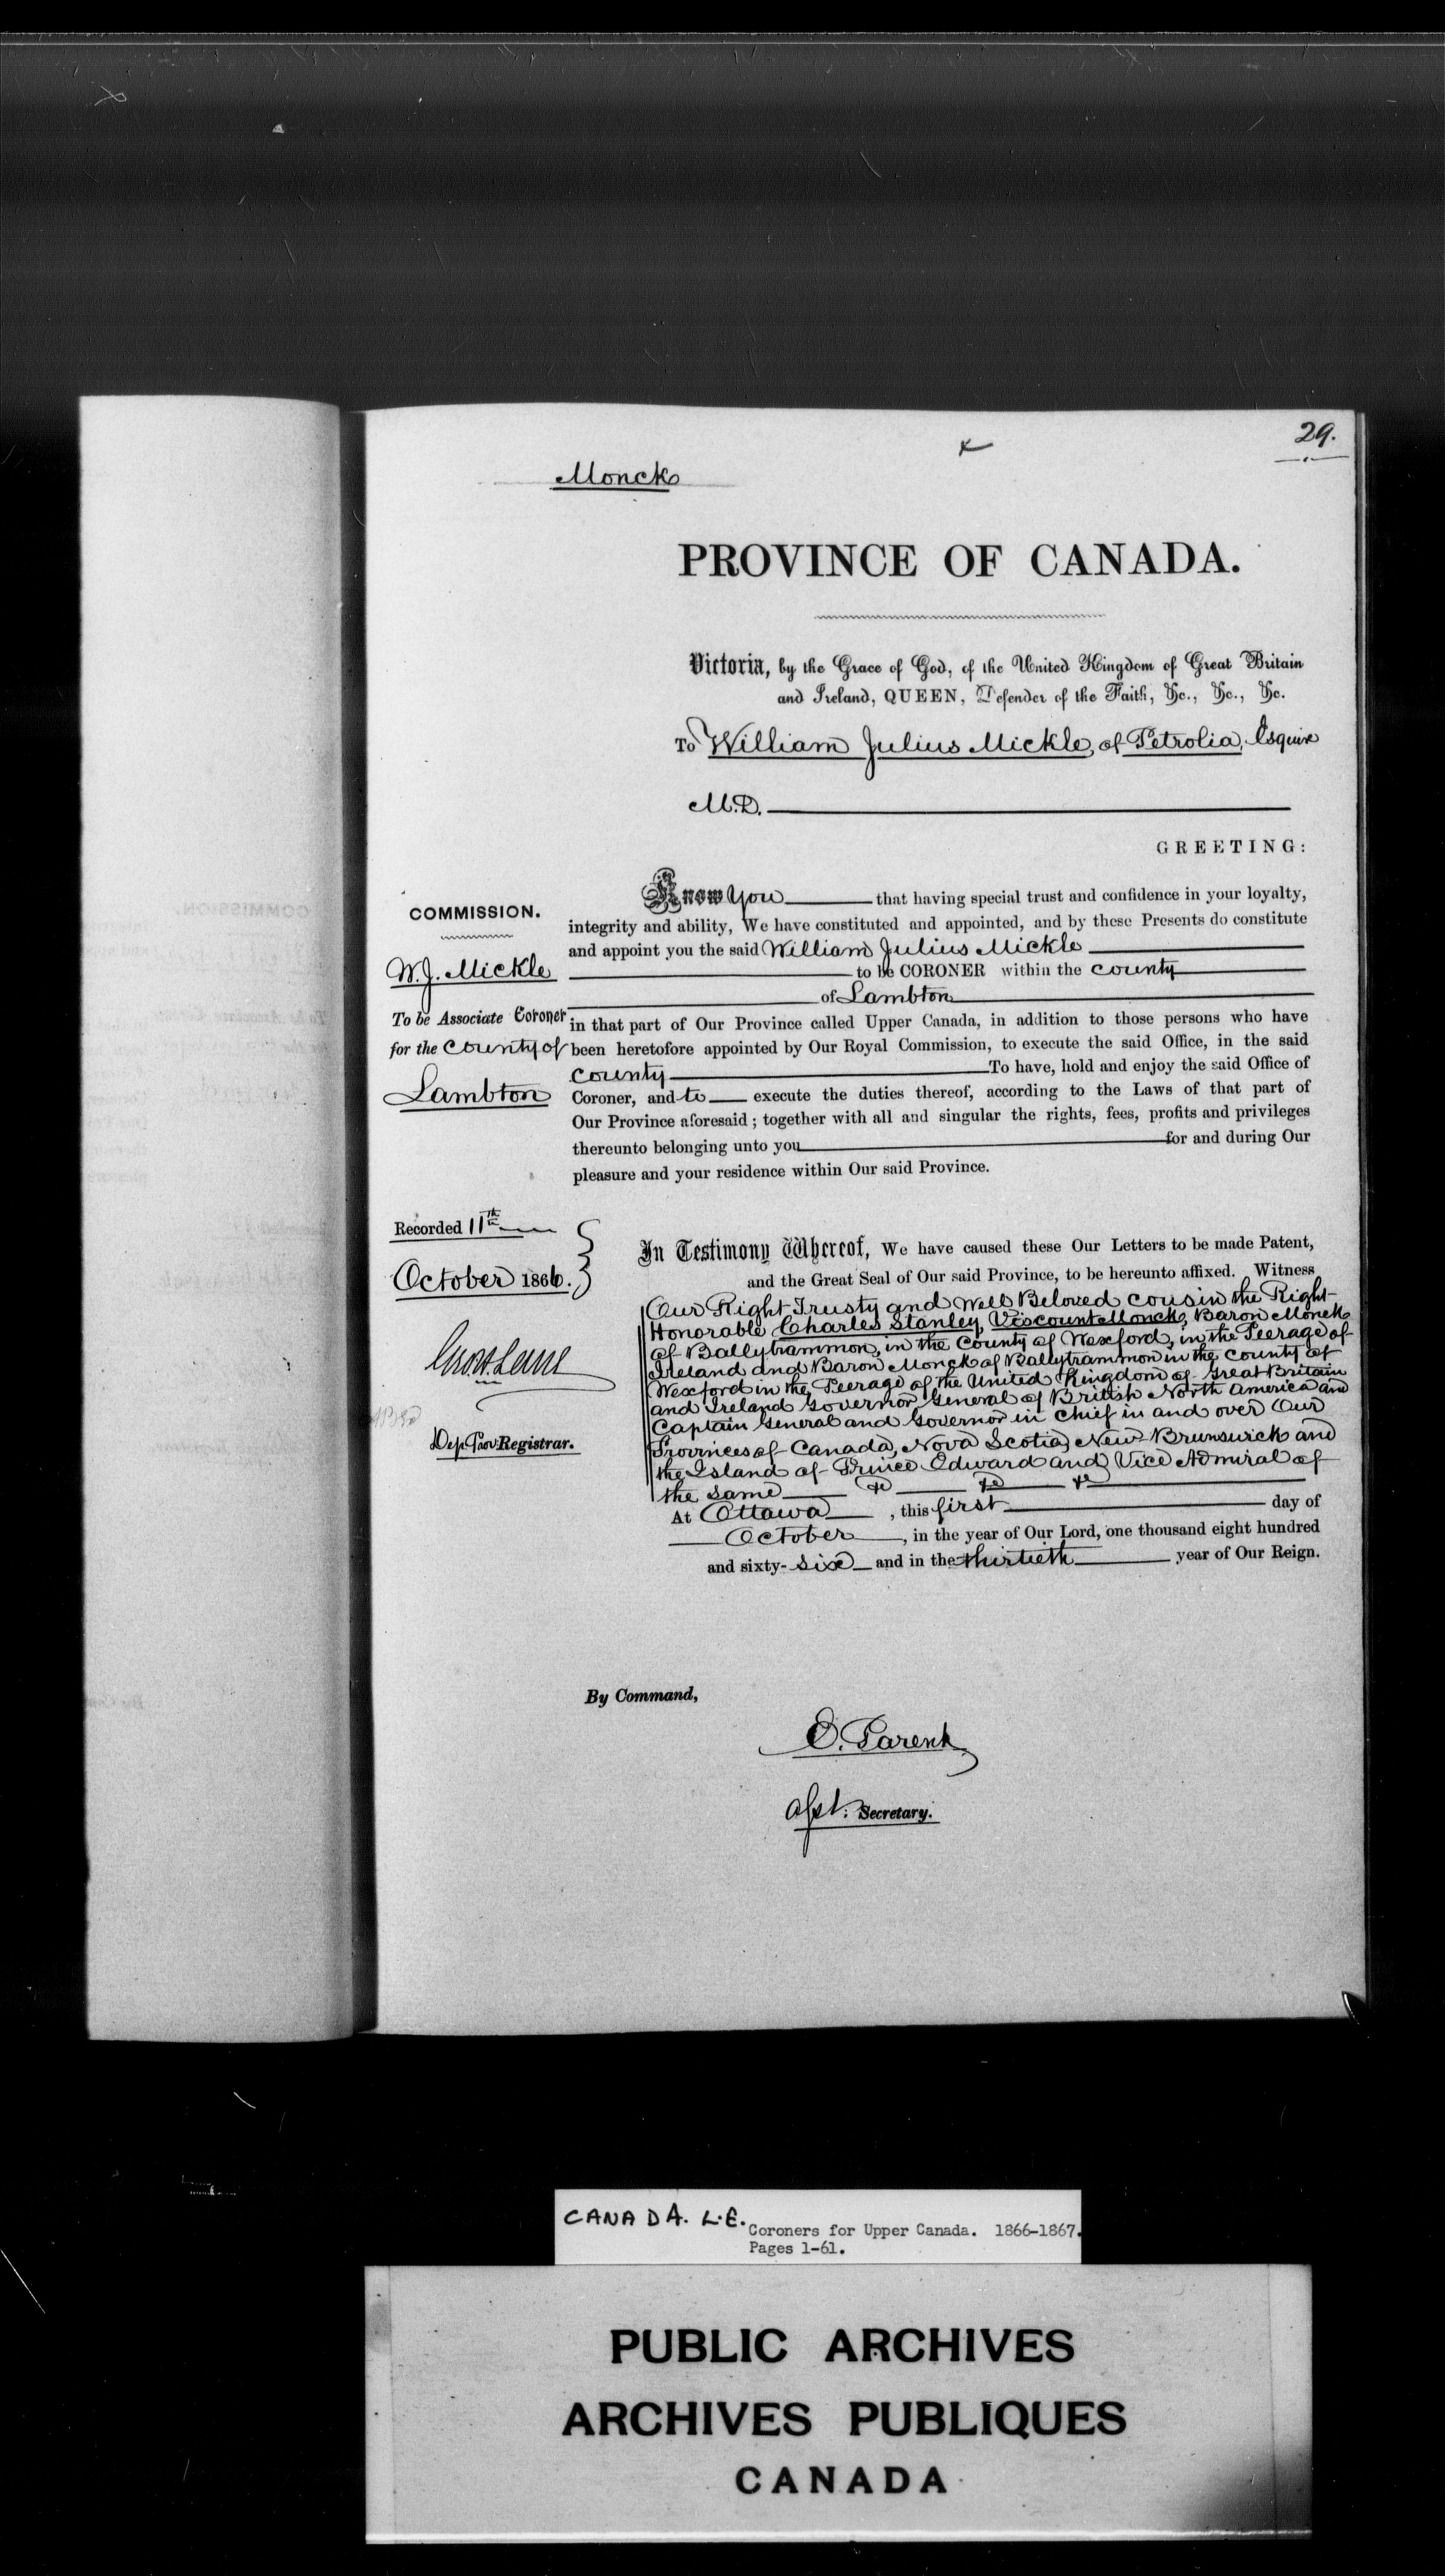 29.
Monck
PROVINCE OF CANADA.
Victoria, by the Grace of God, of the United Kingdom of Great Britain
and Ireland, QUEEN, Defender of the Faith, &c., &c., &c.
To William Julius Mickle, of Petrolia, Esquire
M.D.
GREETING:
COMMISSION.
W. J. Mickle
To be Associate Coroner
for the County of
Lambton
Know You that having special trust and confidence in your loyalty,
integrity and ability, We have constituted and appointed, and by these Presents do constitute
and appoint you the said William Julius Mickle
to be CORONER within the county
of Lambton
in that part of Our Province called Upper Canada, in addition to those persons who have
been heretofore appointed by Our Royal Commission, to execute the said Office, in the said
County To have, hold and enjoy the said Office of
Coroner, and to execute the duties thereof, according to the Laws of that part of
Our Province aforesaid; together with all and singular the rights, fees, profits and privileges
thereunto belonging unto you for and during Our
pleasure and your residence within Our said Province.
Recorded 11th
October 1866.
Dep. Prov. Registrar.
In Testimony Whereof, We have caused these Our Letters to be made Patent,
and the Great Seal of Our said Province, to be hereunto affixed. Witness
Our Right Trusty and Well Beloved cousin the Right
Honorable Charles Stanley, Viscount Monck, Baron Monck
of Ballytrammon, in the County of Wexford, in the Peerage of
Ireland and Baron Monck of Ballytrammon in the County of
Wexford in the Peerage of the United Kingdom of Great Britain
and Ireland Governor General of British North America and
Captain General and Governor in Chief in and over Our
Provinces of Canada, Nova Scotia, New Brunswick and
the Island of Prince Edward and Vice Admiral of
the same &c &c &c
At Ottawa, this first day of
October, in the year of Our Lord, one thousand eight hundred
and sixty-six and in the thirtieth year of Our Reign.
By Command,
E. Parent
Asst: Secretary.
CANADA. L.E.
Coroners for Upper Canada. 1866-1867.
Pages 1-61.
PUBLIC ARCHIVES
ARCHIVES PUBLIQUES
CANADA